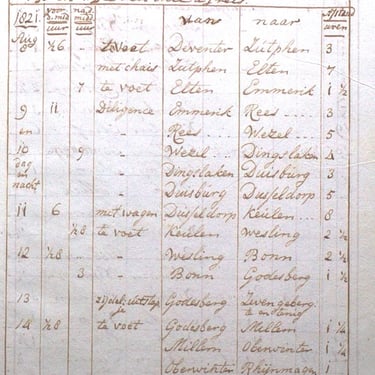 1821. voor d. mid uur nad. midd uur van naar Afstand uren
Aug
8 ½6 te voet Deventer Zutphen 3
met chais Zutphen Elten 7
7 te voet Elten Emmerik 1 ½
9 11 Diligence Emmerik Rees 3
en " Rees Wezel 5
10 9 " Wezel Dingslaken 4
dag " Dingslaken Duisburg 3
en nacht " Duisburg Dusseldorp 5
11 6 met wagen Dusseldorp Keulen 8
½8 te voet Keulen Wesling 2 ½
12 ½8 " Wesling Bonn 2 ½
3 " Bonn Godesberg 1 ½
13 Godesberg Zevengeberg.
te en terug
14 ½8 te voet Godesberg Millem 1 ¼
Millem Oberwinter 1 ¼
Oberwinter Rhijnmagen 1